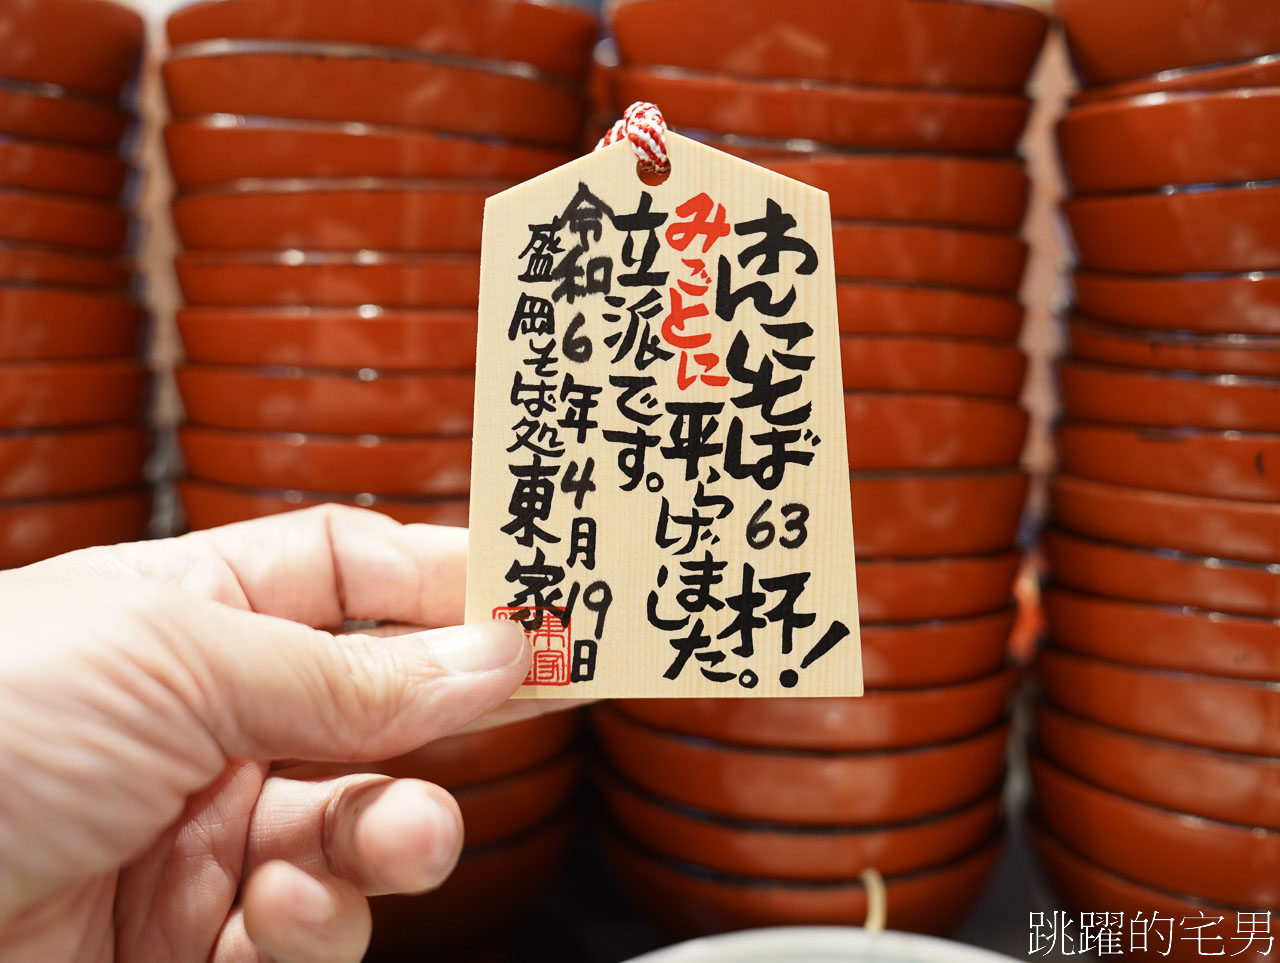 わんこそば63杯!
みごとに平らげました。
立派です。
令和6年4月19日
盛岡そば処東家
東家
跳躍的宅男